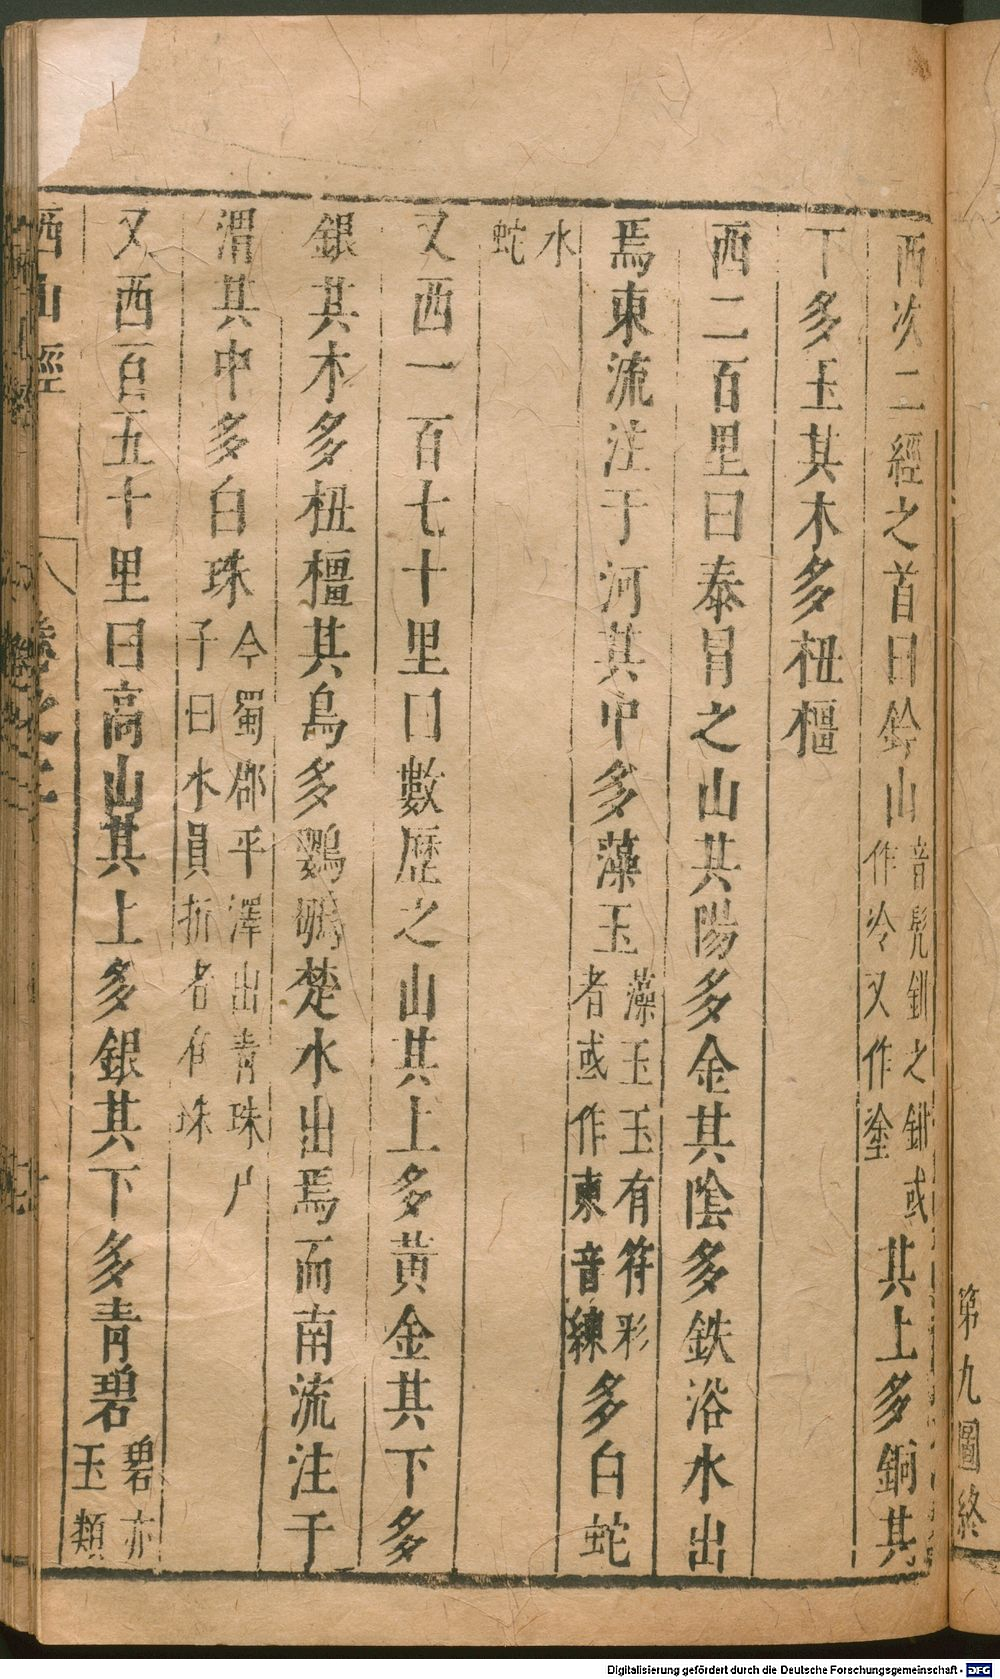 西次二經之首曰鈐山音髡鉗之鉗或作冷又作塗其上多銅其
下多玉其木多杻橿
西二百里曰泰冒之山其陽多金其陰多鉄浴水出
焉東流注于河其中多藻玉藻玉玉有符彩者或作柬音練多白蛇
水蛇
又西一百七十里曰數歷之山其上多黃金其下多
銀其木多杻橿其鳥多鸚䳇楚水出焉而南流注于
渭其中多白珠今蜀郡平澤出青珠尸子曰水員折者有珠
又西百五十里曰高山其上多銀其下多青碧碧亦玉類
西山經 卷之二
第九圖終
Digitalisierung gefördert durch die Deutsche Forschungsgemeinschaft - DFG